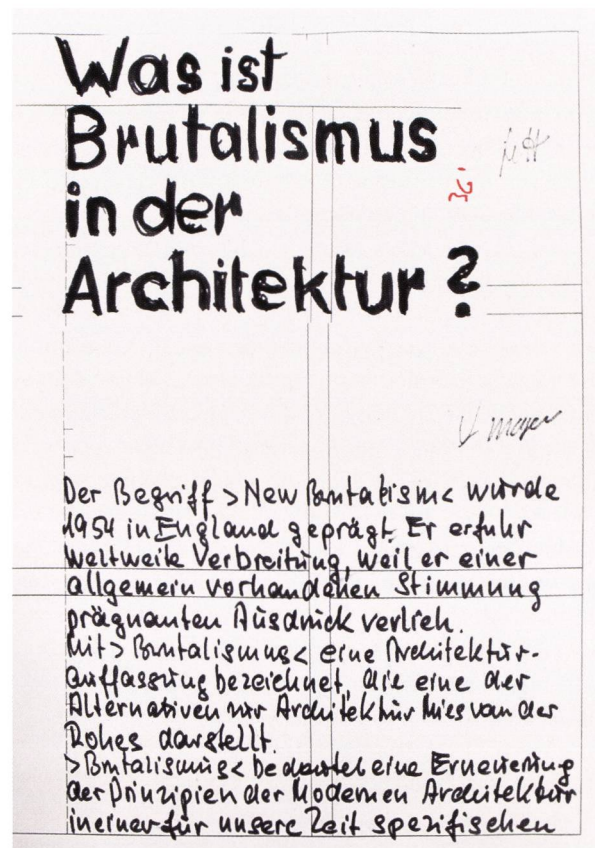 Was ist
Brutalismus
in der
Architektur?
Meyer
Der Begriff >New Brutalism< wurde
1954 in England geprägt. Er erfuhr
weltweite Verbreitung, weil er einer
allgemein vorhandenen Stimmung
prägnanten Ausdruck verlieh.
Mit >Brutalismus< eine Architektur-
auffassung bezeichnet, die eine der
Alternativen zur Architektur Mies van der
Rohes darstellt.
>Brutalismus< bedeutet eine Erneuerung
der Prinzipien der Modernen Architektur
in einer für unsere Zeit spezifischen